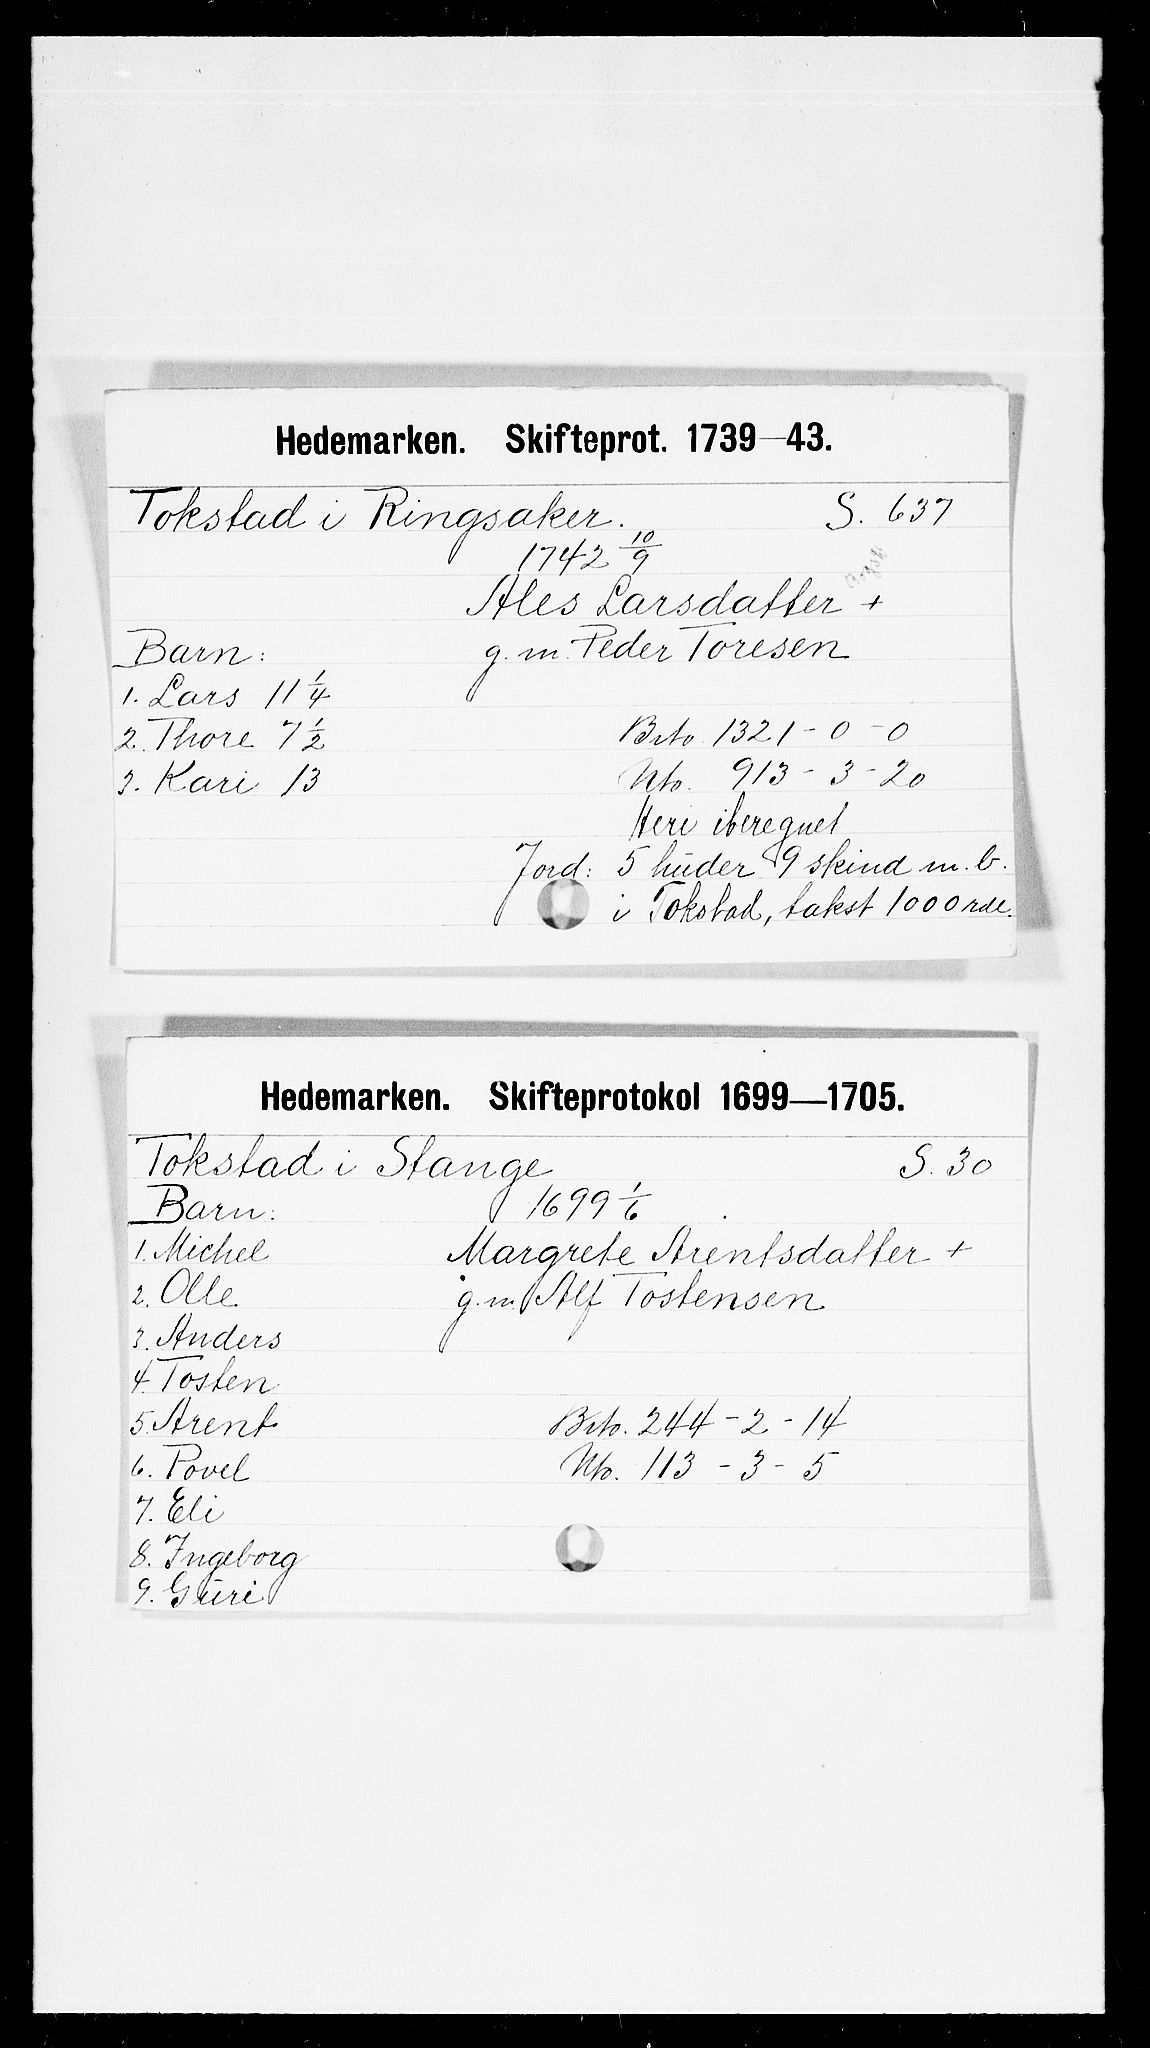 Hedemarken. Skifteprot. 1739—43.
Tokstad i Ringsaker. S. 637
1742 10/9
Ales Larsdatter +
Barn: g. m. Peder Toresen
1. Lars 11 1/4
2. Thore 7 1/2 Brto. 1321 - 0 - 0
3. Kari 13 Nto. 913 - 3 - 20
Heri iberegnet
Jord: 5 huder 9 skind m. b.
i Tokstad, takst 1000 rdl.
Hedemarken. Skifteprotokol 1699—1705.
Tokstad i Stange S. 30
Barn: 1699 1/6
1. Michel Margrete Arentsdatter +
2. Olle g. m. Alf Tostensen
3. Anders
4. Tosten
5. Arent Brto. 244 - 2 - 14
6. Povel Nto. 113 - 3 - 5
7. Eli
8. Ingeborg
9. Guri